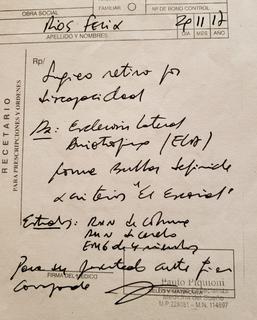 OBRA SOCIAL
FAMILIAR
Nº DE BONO CONTROL
Ríos Felix
29 11 17
APELLIDO Y NOMBRES
DIA MES AÑO
RECETARIO
PARA PRESCRIPCIONES Y ORDENES
Rp/
retiro por
discapacidad
Dx: Esclerosis Lateral
Amiotrófica (ELA)
forma Bulbar definida
criterios "El Escorial"
Estudios: RMN de columna
RMN de
EMG de 4 miembros
Para ser presentado ante
FIRMA DEL MEDICO
SELLO Y MATRICULA